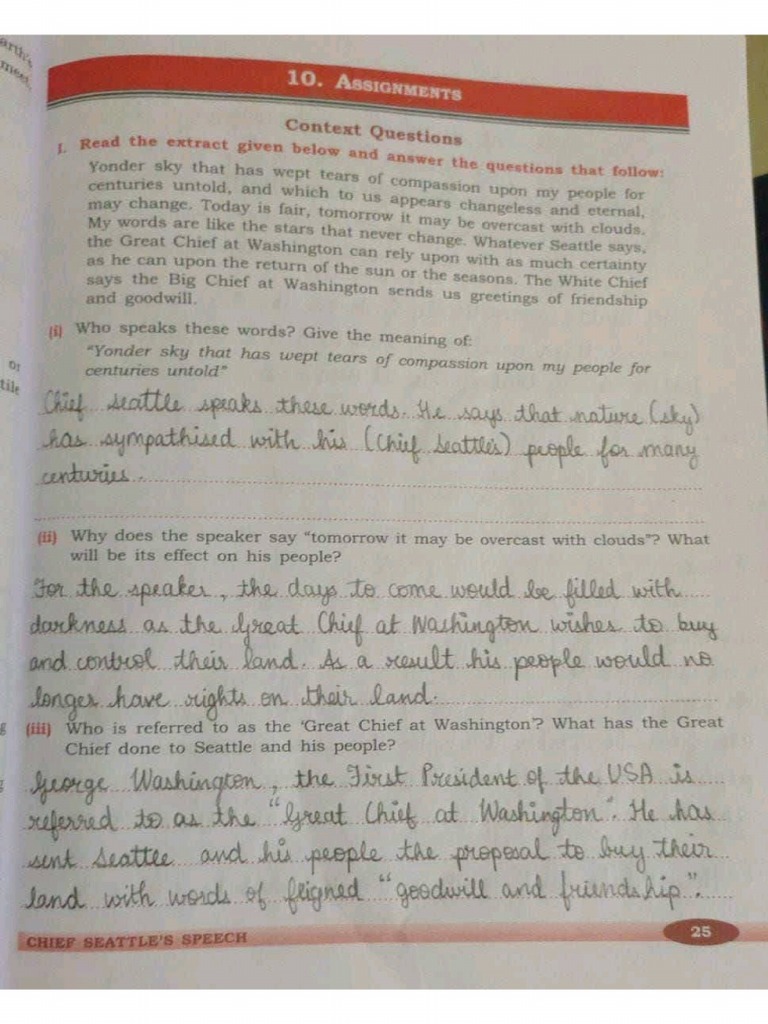 arth's
meet,
10. ASSIGNMENTS
Context Questions
I. Read the extract given below and answer the questions that follow:
Yonder sky that has wept tears of compassion upon my people for
centuries untold, and which to us appears changeless and eternal,
may change. Today is fair, tomorrow it may be overcast with clouds.
My words are like the stars that never change. Whatever Seattle says,
the Great Chief at Washington can rely upon with as much certainty
as he can upon the return of the sun or the seasons. The White Chief
says the Big Chief at Washington sends us greetings of friendship
and goodwill.
(i) Who speaks these words? Give the meaning of:
"Yonder sky that has wept tears of compassion upon my people for
centuries untold"
Chief Seattle speaks these words. He says that nature (sky)
has sympathised with his (Chief Seattle's) people for many
centuries.
(ii) Why does the speaker say "tomorrow it may be overcast with clouds"? What
will be its effect on his people?
For the speaker, the days to come would be filled with
darkness as the Great Chief at Washington wishes to buy
and control their land. As a result his people would no
longer have rights on their land.
(iii) Who is referred to as the 'Great Chief at Washington'? What has the Great
Chief done to Seattle and his people?
George Washington, the First President of the USA is
referred to as the "Great Chief at Washington". He has
sent Seattle and his people the proposal to buy their
land with words of feigned "goodwill and friendship".
CHIEF SEATTLE'S SPEECH
25